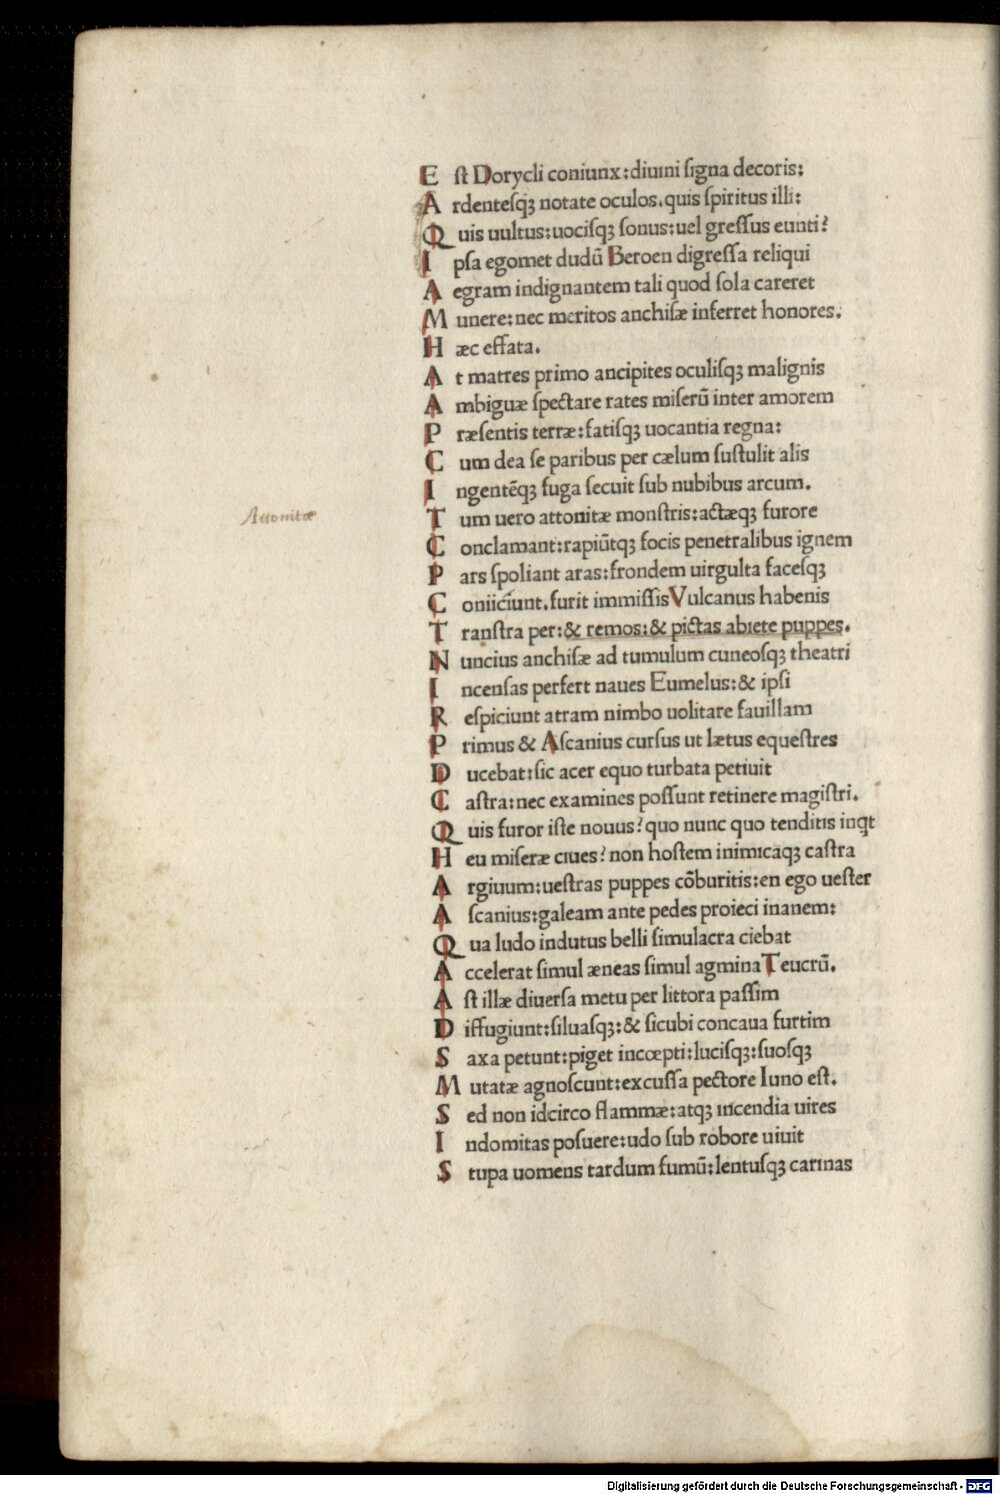 E ſt Dorycli coniunx:diuini ſigna decoris:
A rdenteſqꝫ notate oculos.quis ſpiritus illi:
Q uis uultus:uociſqꝫ ſonus:uel greſſus eunti?
I pſa egomet dudū Beroen digreſſa reliqui
A egram indignantem tali quod ſola careret
M unere:nec meritos anchiſæ inferret honores.
H æc effata.
A t matres primo ancipites oculiſqꝫ malignis
A mbiguæ ſpectare rates miſerū inter amorem
P ræſentis terræ:fatiſqꝫ uocantia regna:
C um dea ſe paribus per cælum ſuſtulit alis
I ngentēqꝫ fuga ſecuit ſub nubibus arcum.
Attonitæ
T um uero attonitæ monſtris:actæqꝫ furore
C onclamant:rapiūtqꝫ focis penetralibus ignem
P ars ſpoliant aras:frondem uirgulta faceſqꝫ
C oniiciunt.furit immiſſis Vulcanus habenis
T ranſtra per:& remos:& pictas abiete puppes.
N uncius anchiſæ ad tumulum cuneoſqꝫ theatri
I ncenſas perfert naues Eumelus:& ipſi
R eſpiciunt atram nimbo uolitare fauillam
P rimus & Aſcanius curſus ut lætus equeſtres
D ucebat:ſic acer equo turbata petiuit
C aſtra:nec examines poſſunt retinere magiſtri.
Q uis furor iſte nouus?quo nunc quo tenditis inqt
H eu miſeræ ciues?non hoſtem inimicaqꝫ caſtra
A rgiuum:ueſtras puppes cōburitis:en ego ueſter
A ſcanius:galeam ante pedes proieci inanem:
Q ua ludo indutus belli ſimulacra ciebat
A ccelerat ſimul æneas ſimul agmina Teucrū.
A ſt illæ diuerſa metu per littora paſſim
D iffugiunt:ſiluaſqꝫ:& ſicubi concaua furtim
S axa petunt:piget incœpti:luciſqꝫ:ſuoſqꝫ
M utatæ agnoſcunt:excuſſa pectore Iuno eſt.
S ed non idcirco flammæ:atqꝫ incendia uires
I ndomitas poſuere:udo ſub robore uiuit
S tupa uomens tardum fumū:lentuſqꝫ carinas
Digitalisierung gefördert durch die Deutsche Forschungsgemeinschaft - DFG